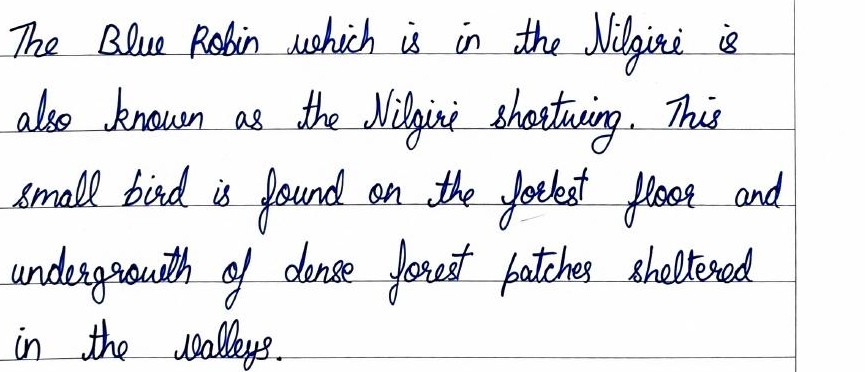 The Blue Robin which is in the Nilgiri is
also known as the Nilgiri shortwing. This
small bird is found on the forest floor and
undergrowth of dense forest patches sheltered
in the valleys.